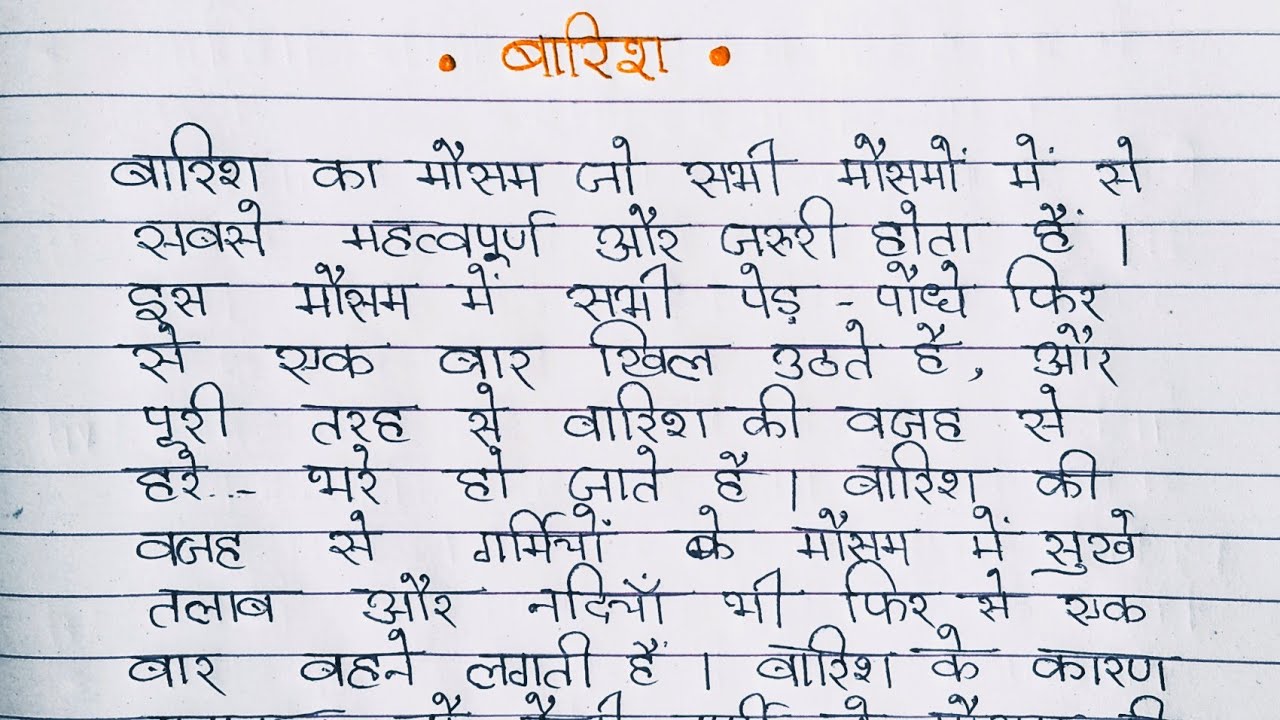 • बारिश •
बारिश का मौसम जो सभी मौसमों में से
सबसे महत्वपूर्ण और जरुरी होता हैं ।
इस मौसम में सभी पेड़ - पौधे फिर
से एक बार खिल उठते है, और
पूरी तरह से बारिश की वजह से
हरे - भरे हो जाते है । बारिश की
वजह से गर्मियों के मौसम में सुखे
तलाब और नदियाँ भी फिर से एक
बार बहने लगती हैं । बारिश के कारण